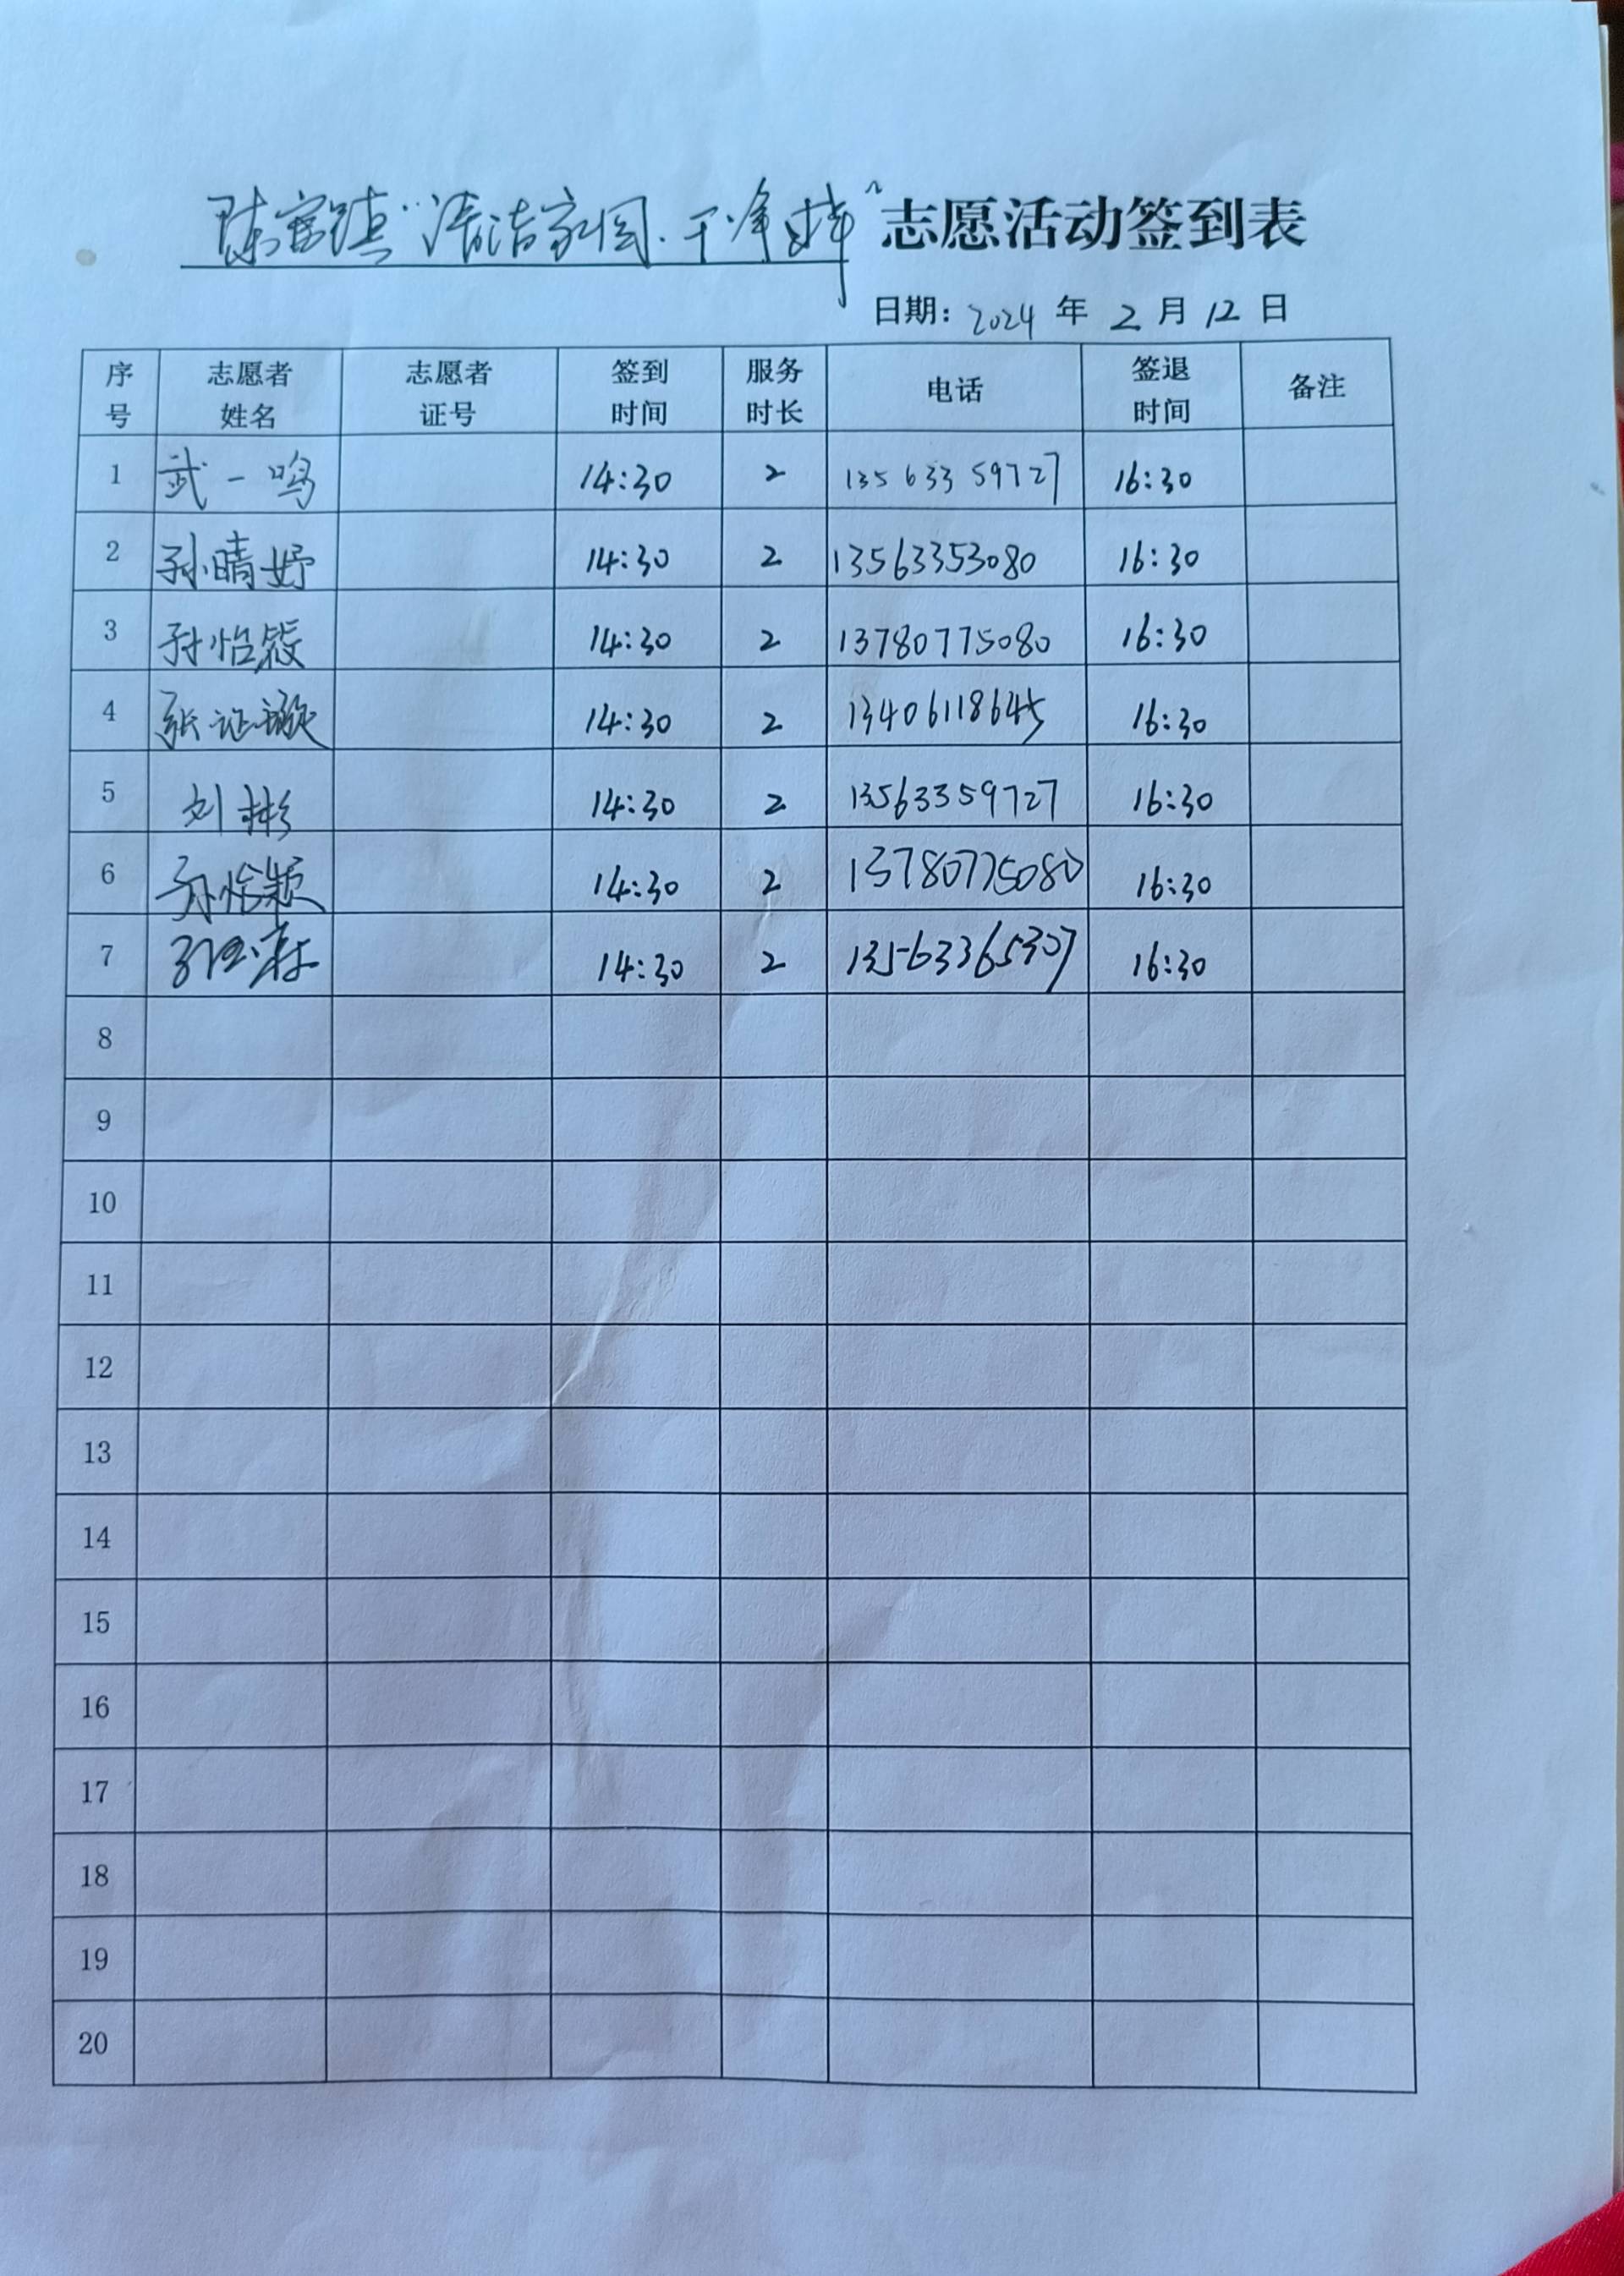 陈官镇“清洁家园.干净过年”志愿活动签到表
日期: 2024 年 2 月 12 日
序号 志愿者姓名 志愿者证号 签到时间 服务时长 电话 签退时间 备注
1 武一鸣 14:30 2 13563359727 16:30
2 孙晴妤 14:30 2 13563353080 16:30
3 孙怡 14:30 2 13780775080 16:30
4 张证 14:30 2 13406118645 16:30
5 刘彬 14:30 2 13563359727 16:30
6 孙怡颖 14:30 2 13780775080 16:30
7 14:30 2 13563365307 16:30
8
9
10
11
12
13
14
15
16
17
18
19
20